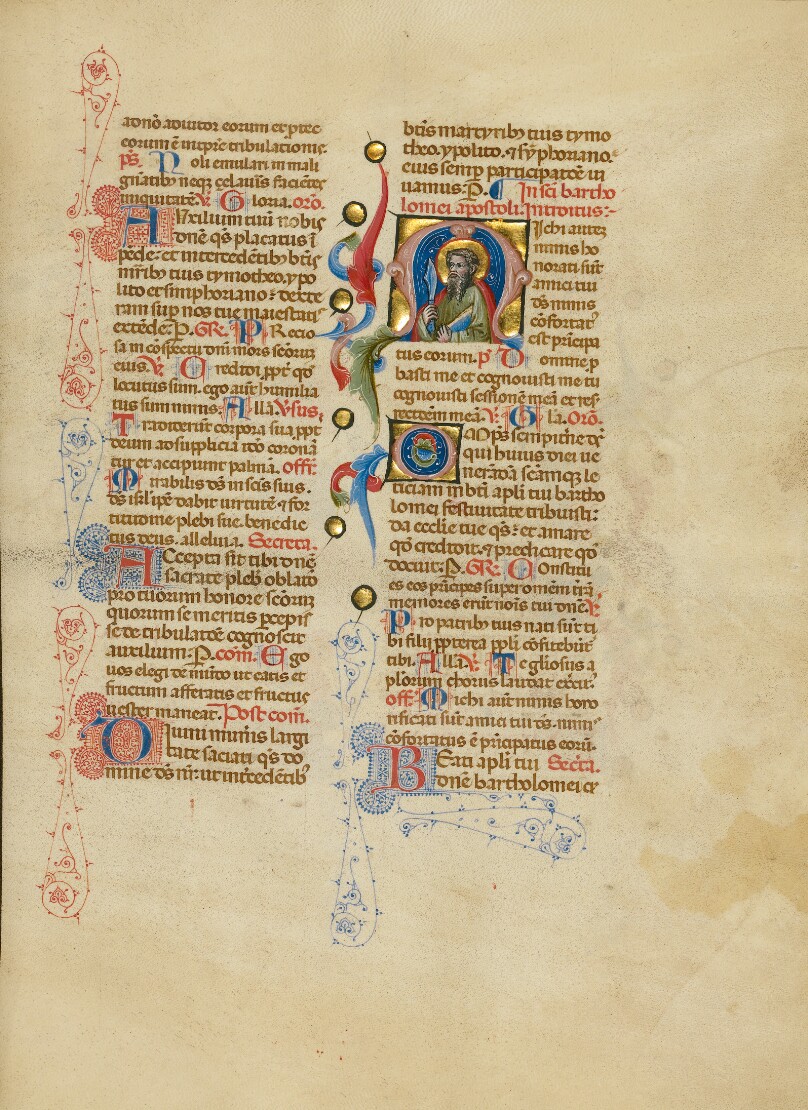 a dno adiutor eorum et protec
eorum é in tpre tribulationis.
ps. Noli emulari in mali
gnatibȝ neqȝ celaúis faciétes
iniquitaté. V. Gloria. oro.
Auxilium tuū nobis
doné qs placatus ī
péde: et intercedétibȝ btis
mr̄ibȝ tuis tymotheo. ypo
lito et simphoriano: dexte
ram sup nos tue maiestatis
extéde. P. GR. Precio
sa in cōspectu dnī mors scōrū
eius. V. Credidi, ppt qd
locutus sum. ego aūt humilia
tus sum nimis. Alla. Vsus.
Tradiderūt corpora sua ppt
deum ad supplicia ideo coronā
tur et accipiunt palmā. offr.
Mirabilis ds in scis suis.
ds isrl ipé dabit uirtuté ⁊ for
titudiné plebi sue. benedic
tus deus. alleluia. Secreta.
Accepta sit tibi dné
sacrate plebȝ oblatō
pro tuorum honore scōrum
quorum se meritis pcepis
se de tribulatóe cognoscit
auxilium. P. com. Ego
uos elegi de mūdo ut eatis et
fructum afferatis et fructus
uester maneat. Post com.
Diuini muníis largi
tate saciati qs do
mine ds nr̄: ut intcedétibȝ
btis martyribȝ tuis tymo
theo. ypolito. ⁊ syphoriano.
eius semp participatóe ui
uamus. P. In sci bartho
lomei apostoli. Introitus:
Michi autez
nimis ho
norati sūt
amici tui
ds nimis
cōfortat'
est prīcipa
tus eorum. ps Domine p
basti me et cognouisti me tu
cognouisti sessioné meā et res
rectioém meā. V. Gla. Oro.
OMps sempitne ds
qui huius diei ue
nerādā scāmqȝ le
ticiam in bti apli tui bartho
lomei festiuitate tribuisti:
da ecclie tue qs: et amare
qd credidit. ⁊ predicare qd
docuit. P. GR. Constitu
es eos prīcipes super omem trā
memores erūt nois tui dné. V.
Pro patribȝ tuis nati sūt ti
bi filij ppterea ppli cōfitebūt'
tibi. Alla. V. Te gliosus a
plorum chorus laudat excels'.
off. Michi aūt nimis hono
rificati sūt amici tui ds. nimis
cōfortatus é prīcipatus eorū.
BEati apli tui Secrta.
doné bartholomei cr